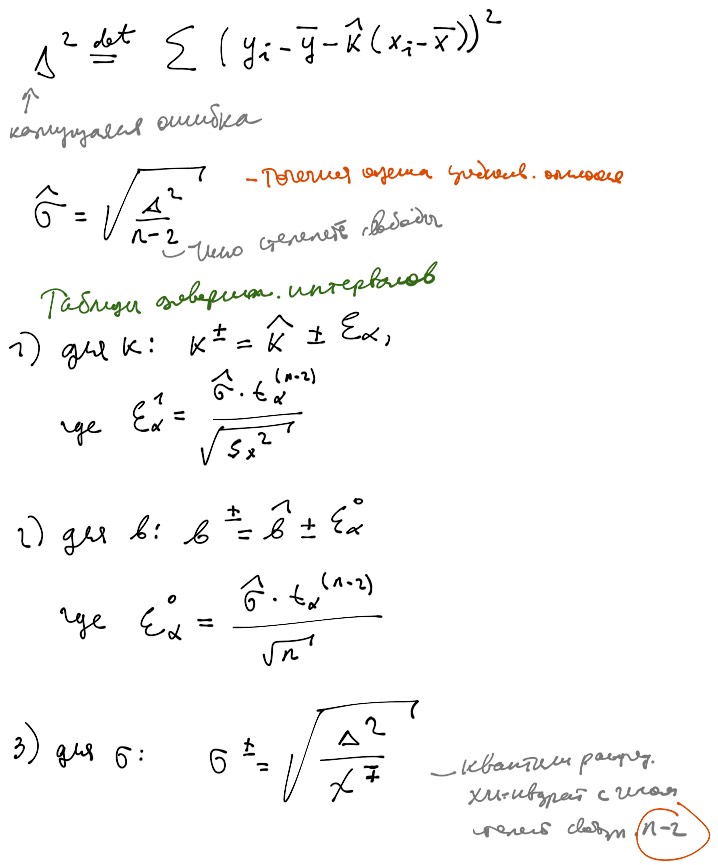 Δ² det= Σ (yᵢ - ȳ - k̂ (xᵢ - x̄))²
кажущаяся ошибка
σ̂ = √(Δ²/(n-2)) - Точечная оценка
- Число степеней свободы
Таблицы доверит. интервалов
1) для k: k^± = k̂ ± ε_α,
где ε_α^1 = σ̂ · t_α^(n-2) / √(Sx²)
2) для b: b^± = b̂ ± ε_α^0
где ε_α^0 = σ̂ · t_α^(n-2) / √n
3) для σ: σ^± = √(Δ²/χ^∓)
- квантили распр.
хи-квадрат с числом
степен свобод. n-2